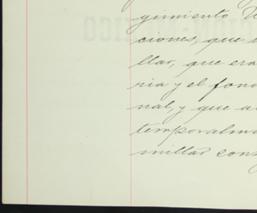 gumiento
ciones, que
llas, que era
ria y el fond
nal, y que a
temporalme
millas cons